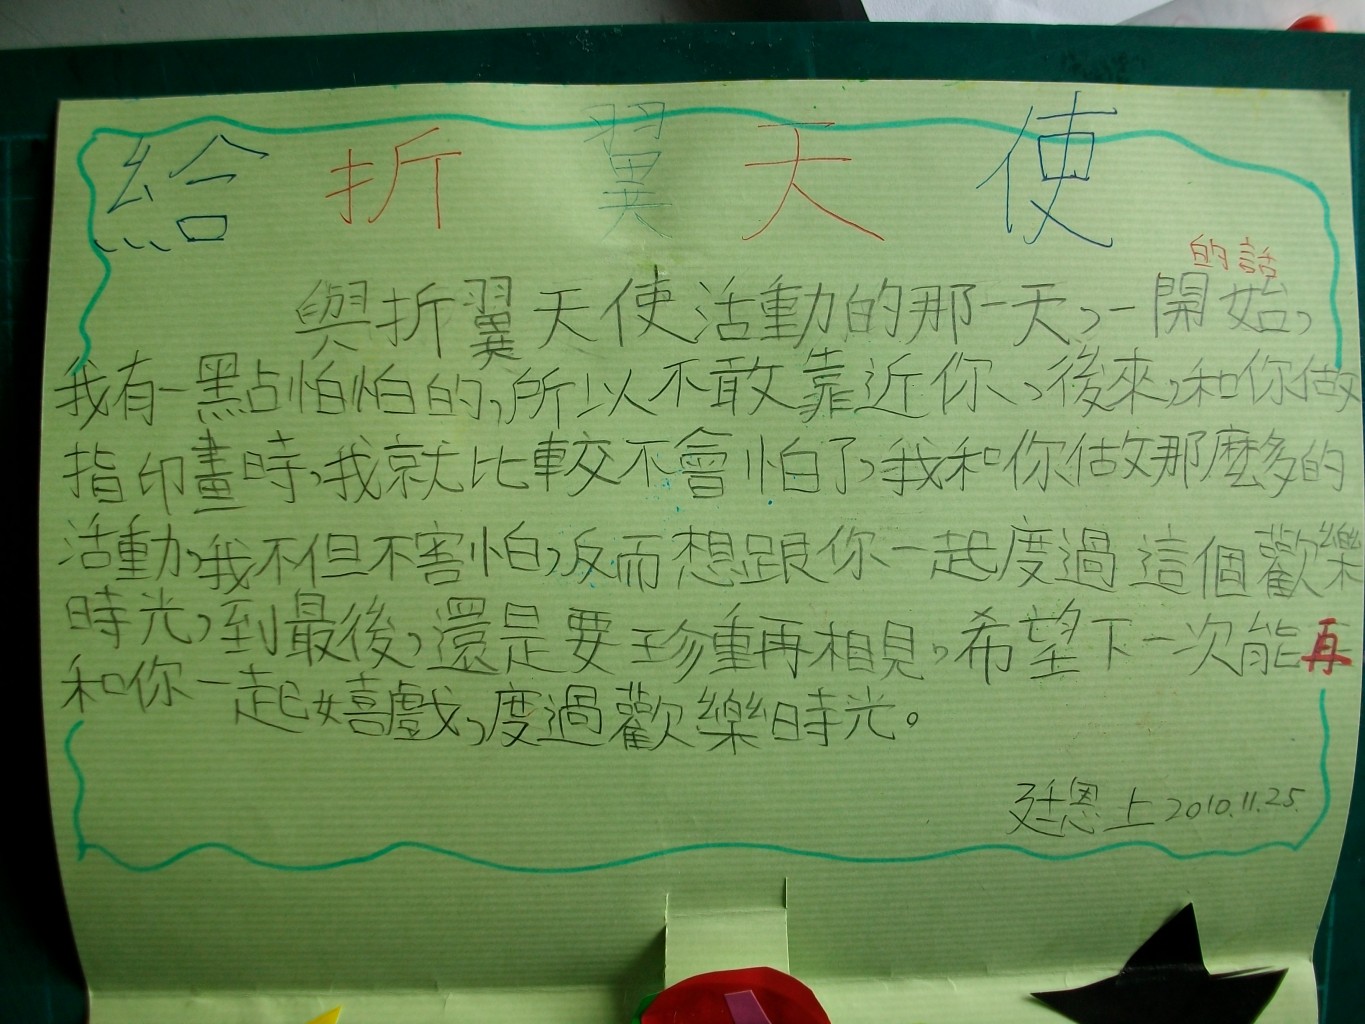 給折翼天使
的話
與折翼天使活動的那一天，一開始，
我有一點怕怕的，所以不敢靠近你、後來，和你做
指印畫時，我就比較不會怕了，我和你做那麼多的
活動，我不但不害怕，反而想跟你一起度過這個歡樂
時光，到最後，還是要珍重再相見，希望下一次能再
和你一起嬉戲，度過歡樂時光。
廷恩上2010.11.25.